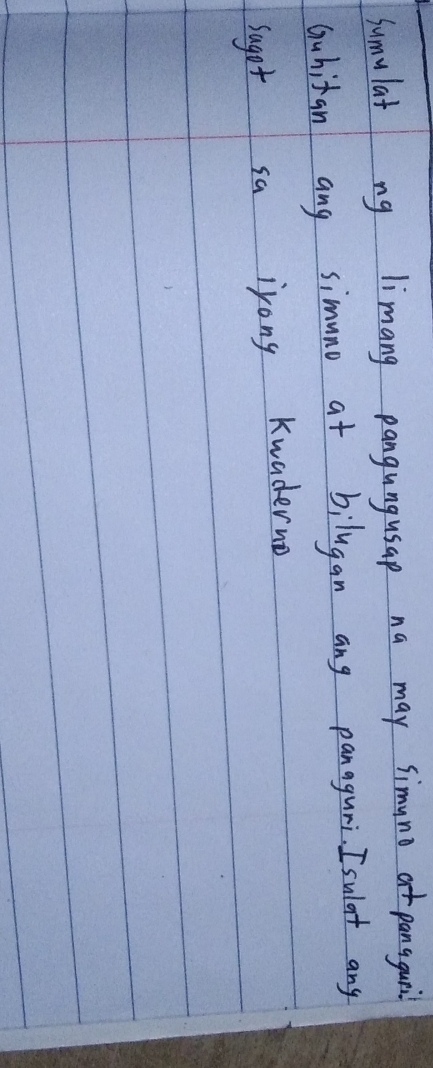 Sumulat ng limang pangungusap na may simuno at pangguri.
Guhitan ang simuno at bilugan ang pangguri. Isulat ang
sagot sa iyong kwaderno